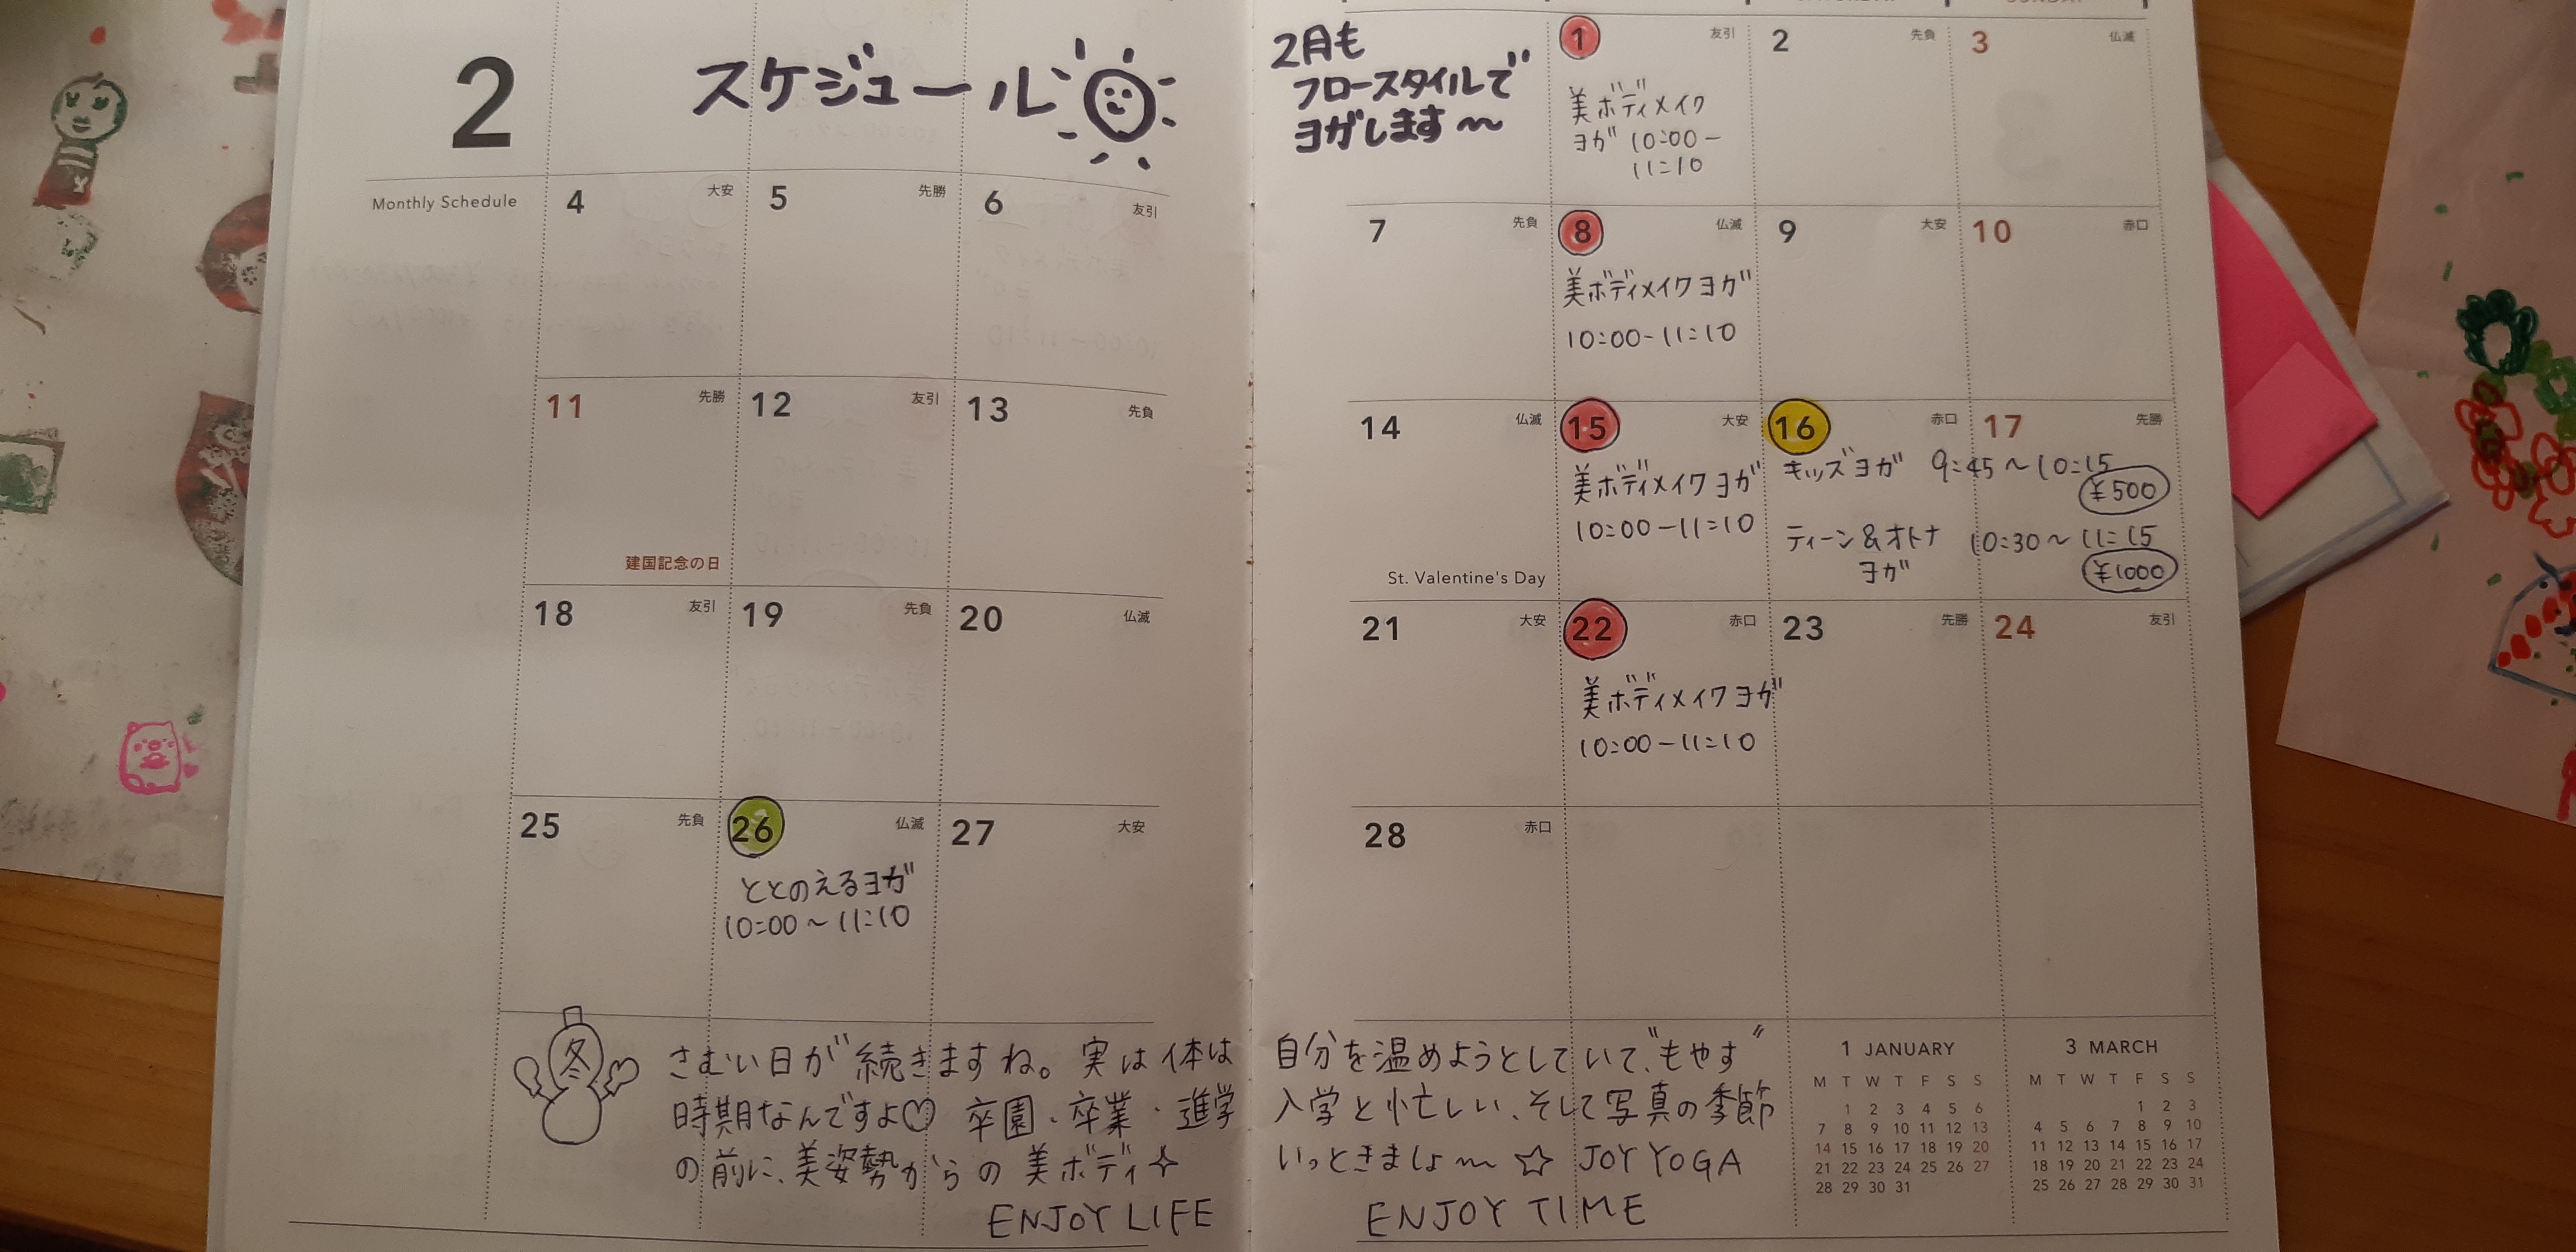 2
スケジュール
Monthly Schedule
4 大安
5 先勝
6 友引
11 先勝
建国記念の日
12 友引
13 先負
18 友引
19 先負
20 仏滅
25 先負
26 仏滅
ととのえるヨガ
10:00～11:10
27 大安
2月も
フロースタイルで
ヨガします～
1 友引
美ボディメイク
ヨガ 10:00-
11:10
2 先負
3 仏滅
7 先負
8 仏滅
美ボディメイクヨガ
10:00-11:10
9 大安
10 赤口
14 仏滅
St. Valentine's Day
15 大安
美ボディメイクヨガ
10:00-11:10
16 赤口
17 先勝
キッズヨガ 9:45～10:15
¥500
ティーン&オトナ 10:30～11:15
ヨガ
¥1000
21 大安
22 赤口
美ボディメイクヨガ
10:00-11:10
23 先勝
24 友引
28 赤口
冬
さむい日が続きますね。実は体は自分を温めようとしていて、"もやす"
時期なんですよ♡ 卒園・卒業・進学入学と忙しい、そして写真の季節
の前に、美姿勢からの美ボディいっときましょ～☆ JOY YOGA
ENJOY LIFE ENJOY TIME
1 JANUARY
M T W T F S S
1 2 3 4 5 6
7 8 9 10 11 12 13
14 15 16 17 18 19 20
21 22 23 24 25 26 27
28 29 30 31
3 MARCH
M T W T F S S
1 2 3
4 5 6 7 8 9 10
11 12 13 14 15 16 17
18 19 20 21 22 23 24
25 26 27 28 29 30 31